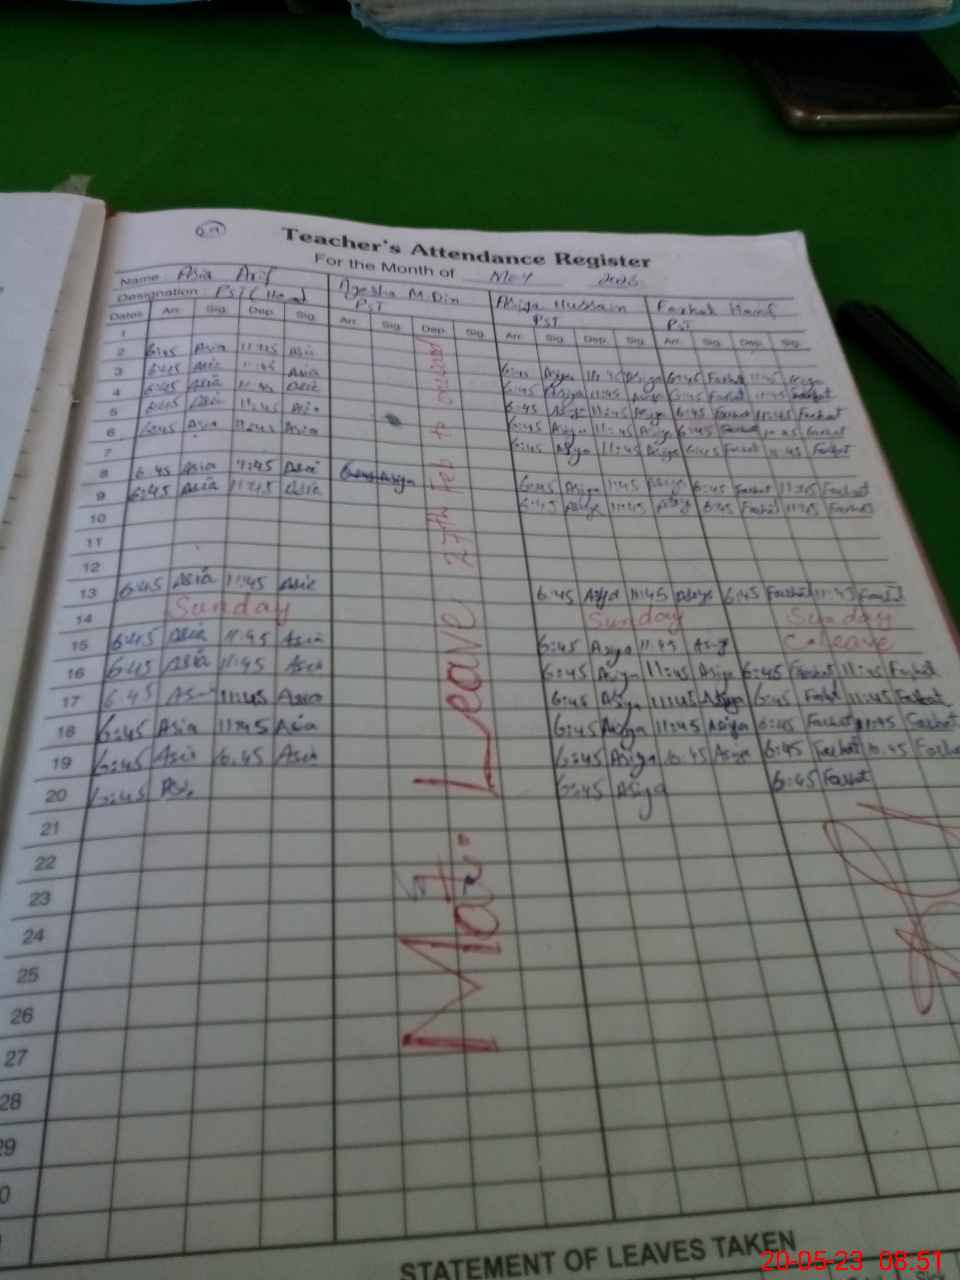 Teacher's Attendance Register
For the Month of May 2023
Name Asia Arif Ayesha M.Din Asiya Hussain Farhat Hanif
Designation PST (Head) PST PST PST
Dates Arr. Sig. Dep. Sig. Arr. Sig. Dep. Sig. Arr. Sig. Dep. Sig. Arr. Sig. Dep. Sig.
1
2 6:45 Asia 11:45 Asia 6:45 Asiya 11:45 Asiya 6:45 Farhat 11:45
3 6:45 Asia 11:45 Asia 6:45 Asiya 11:45 Asiya 6:45 Farhat 11:45 Farhat
4 6:45 Asia 11:45 Asia 6:45 Asiya 11:45 Asiya 6:45 Farhat 11:45 Farhat
5 6:45 Asia 11:45 Asia 6:45 Asiya 11:45 Asiya 6:45 Farhat Farhat
6 6:45 Asia 11:45 Asia 6:45 Asiya 11:45 Asiya 6:45 Farhat 11:45 Farhat
7
8 6:45 Asia 11:45 Asia 6:45 Asiya 11:45 Asiya 6:45 Farhat 11:45 Farhat
9 6:45 Asia 11:45 Asia 6:45 Asiya 11:45 Asiya 6:45 Farhat 11:45 Farhat
10
11
12
13 6:45 Asia 11:45 Asia 6:45 Asiya 11:45 Asiya 6:45 Farhat 11:45 Farhat
14 Sunday Sunday Sunday
15 6:45 Asia 11:45 Asia 6:45 Asiya 11:45 Asiya C.leave
16 6:45 Asia 11:45 Asia 6:45 Asiya 11:45 Asiya 6:45 Farhat 11:45 Farhat
17 6:45 Asia 11:45 Asia 6:45 Asiya 11:45 Asiya 6:45 Farhat 11:45 Farhat
18 6:45 Asia 11:45 Asia 6:45 Asiya 11:45 Asiya 6:45 Farhat 11:45 Farhat
19 6:45 Asia 10.45 Asia 6:45 Asiya 10.45 Asiya 6:45 Farhat 10.45 Farhat
20 6:45 Asia 6:45 Asiya 6:45 Farhat
21
22
23
24
25
26
27
28
29
30
Mat. Leave 27th Feb to
STATEMENT OF LEAVES TAKEN
20-05-23 08:51